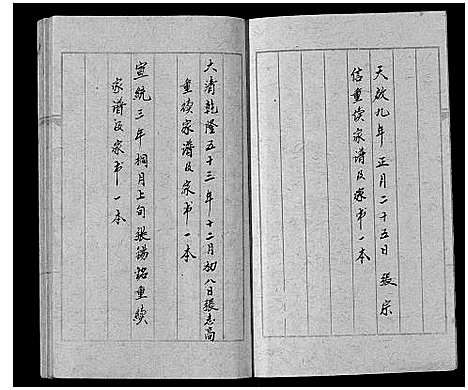 天啟九年 正月二十五日 張宗
信重续家谱及家书一本
大清乾隆五十三年十二月初八日張志高
重续家谱及家书一本
宣統三年桐月上旬張锡铭重续
家谱及家书一本